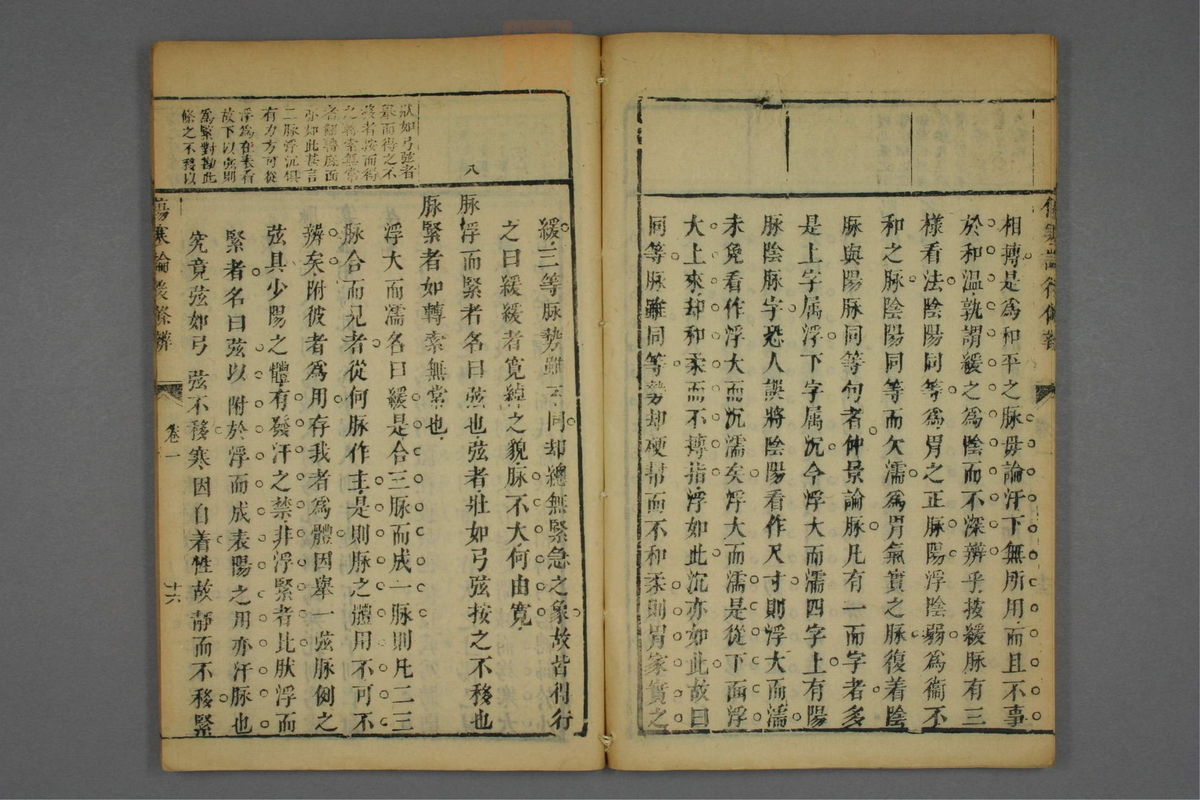 相摶是爲和平之脉毋論汗下無所用而且不事
於和溫孰謂緩之爲陰而不深辨乎按緩脉有三
樣看法陰陽同等爲胃之正脉陽浮陰弱爲衞不
和之脉陰陽同等而欠濡爲胃氣實之脉復着陰
脉與陽脉同等句者仲景論脉凡有一而字者多
是上字属浮下字属沉今浮大而濡四字上有陽
脉陰脉字恐人誤將陰陽看作尺寸則浮大而濡
未免看作浮大而沉濡矣浮大而濡是從下面浮
大上來却和柔而不摶指浮如此沉亦如此故曰
同等脉雖同等勢却硬幇而不和柔則胃家實之
緩三等脉勢雖不同却總無緊急之象故皆得行
之曰緩緩者寬綽之貌脉不大何由寬
八
脉浮而緊者名曰弦也弦者壯如弓弦按之不移也
脉緊者如轉索無常也
浮大而濡名曰緩是合三脉而成一脉則凡二三
脉合而見者從何脉作主是則脉之體用不可不
辨矣附彼者爲用存我者爲體因舉一弦脉例之
弦具少陽之體有發汗之禁非浮緊者比肰浮而
緊者名曰弦以附於浮而成表陽之用亦汗脉也
究竟弦如弓弦不移寒因自着性故靜而不移緊
狀如弓弦者
舉而得之不
移者按而得
之轉索無常
者翻轉底面
亦如此甚言
二脉浮沉俱
有力方可從
浮爲在表看
故下以弦則
爲緊對勘此
條之不移以
傷寒論後條辨
卷一
十六